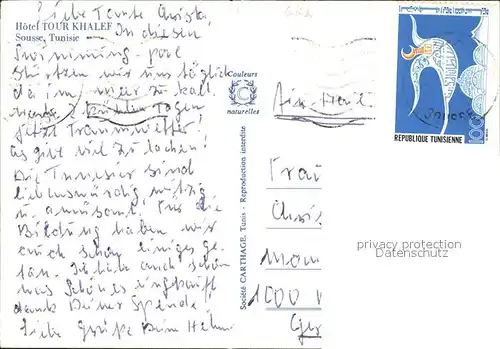 Liebe Tante Christl
Hôtel TOUR KHALEF
Sousse, Tunisie
In diesen
Swimming-pool
stürzen wir uns täglich
da im Meer zu kalt.
kühlen Tagen
jetzt Traumwetter,
es gibt viel zu lachen!
Die Tunesier sind
liebenswürdig, witzig
u. amüsant. Für die
Bildung haben wir
auch schon einiges ge-
tan. Ich habe auch schon
was Schönes eingekauft
dank Deiner Spende.
Liebe Grüße Dein Helmi
Couleurs
C
naturelles
Société CARTHAGE, Tunis - Reproduction interdite
Air Mail
REPUBLIQUE TUNISIENNE
Frau
Chris
1000
privacy protection
Datenschutz